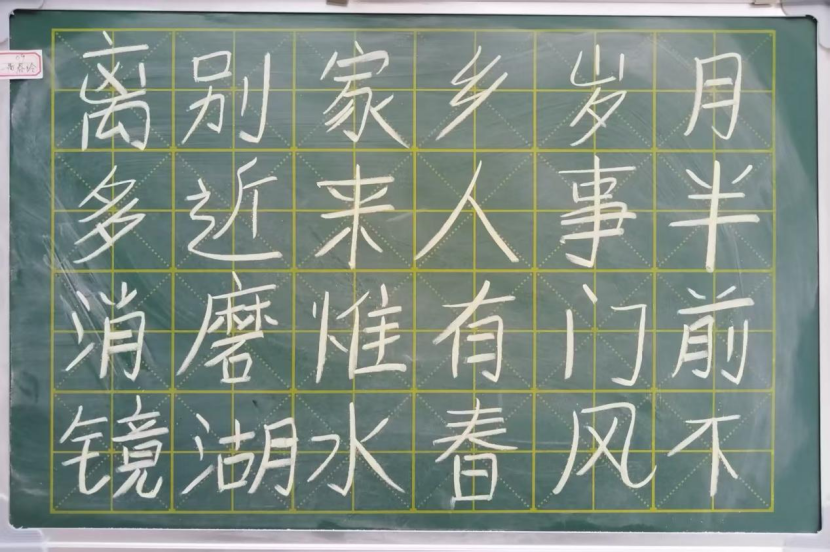 离别家乡岁月
多近来人事半
消磨惟有门前
镜湖水春风不